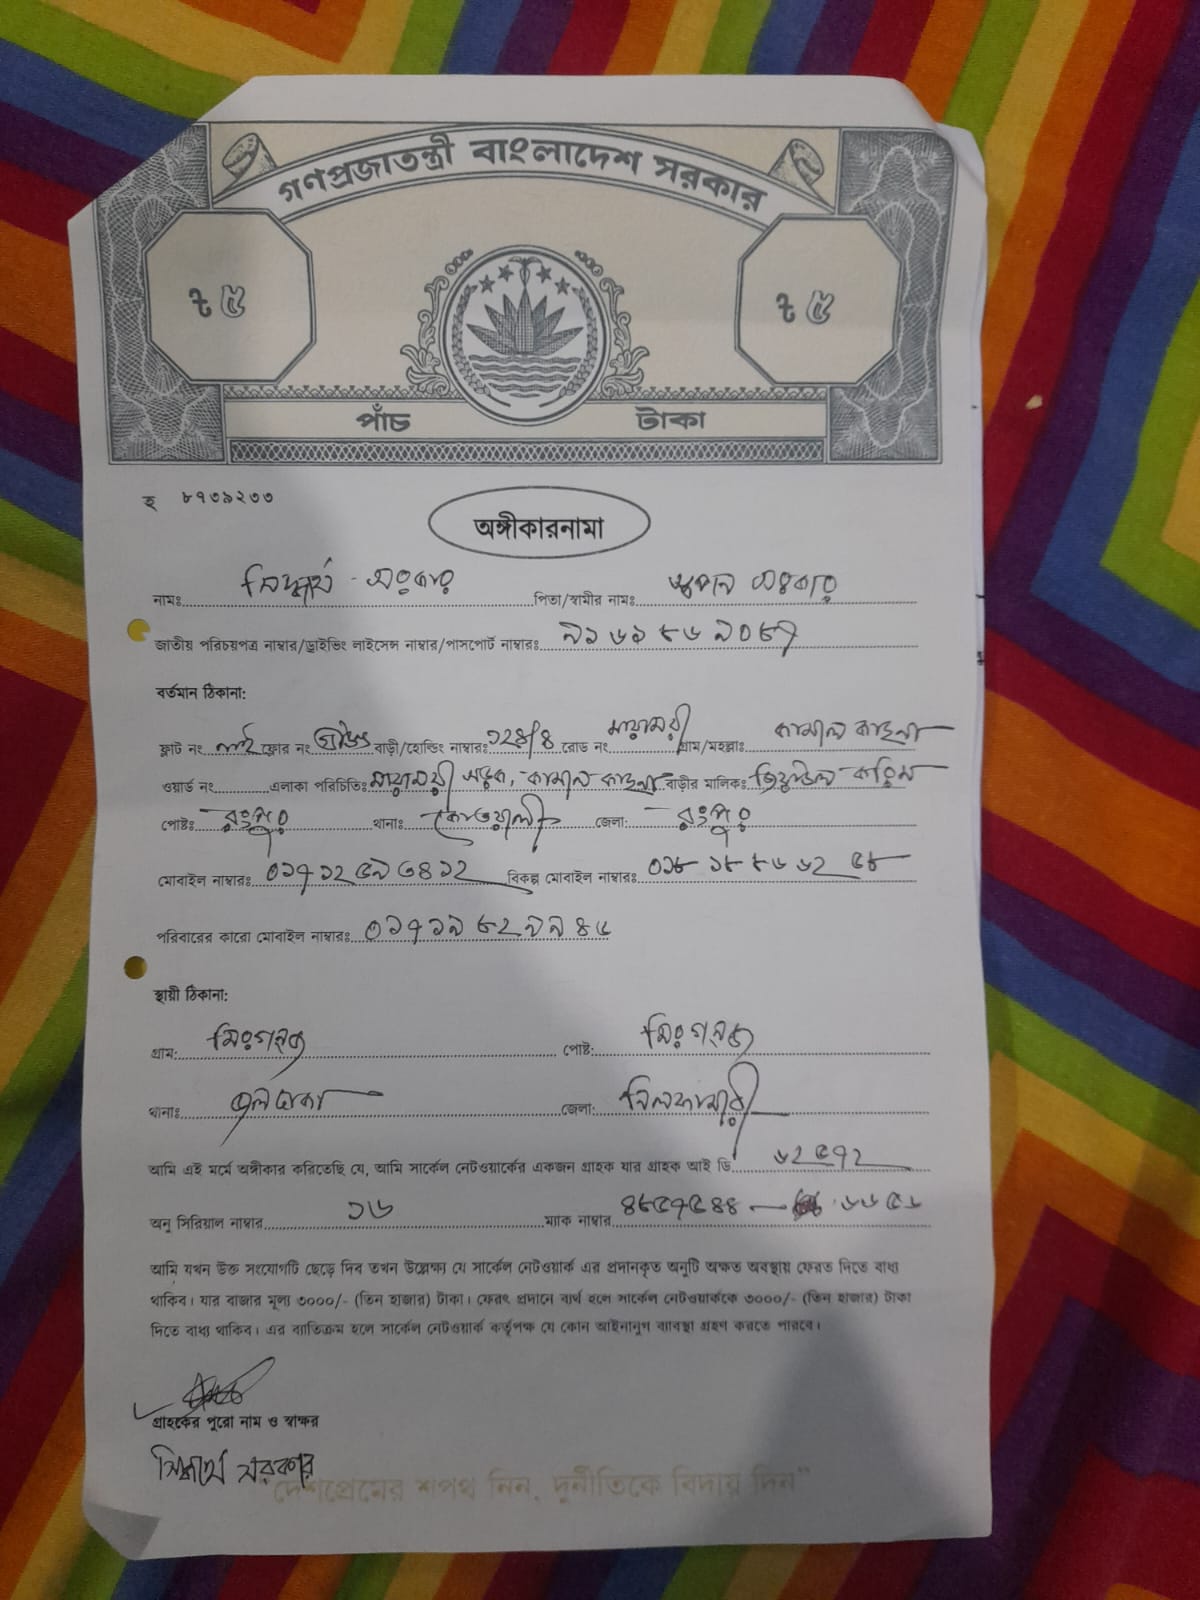 গণপ্রজাতন্ত্রী বাংলাদেশ সরকার
ট ৫ ট ৫
পাঁচ টাকা
হ ৮৭৩৯২৩৩
অঙ্গীকারনামা
নামঃ সিদ্ধার্থ সরকার পিতা/স্বামীর নামঃ স্বপন সরকার
জাতীয় পরিচয়পত্র নাম্বার/ড্রাইভিং লাইসেন্স নাম্বার/পাসপোর্ট নাম্বারঃ ৯১৬১৮৬৯০৮৭
বর্তমান ঠিকানা:
ফ্লাট নং নাই ফ্লোর নং গ্রাউন্ড বাড়ী/হোল্ডিং নাম্বারঃ ১২৪/৪ রোড নং মায়াময়ী গ্রাম/মহল্লাঃ কামাল কাছনা
ওয়ার্ড নং এলাকা পরিচিতিঃ মায়াময়ী সড়ক, কামাল কাছনা বাড়ীর মালিকঃ করিম
পোষ্টঃ রংপুর থানাঃ কোতয়ালী জেলা: রংপুর
মোবাইল নাম্বারঃ ০১৭১২৫৯৩৪১২ বিকল্প মোবাইল নাম্বারঃ ০১৮১৮৮৬৬২৫৮
পরিবারের কারো মোবাইল নাম্বারঃ ০১৭১৯৮২৯৯৪৬
স্থায়ী ঠিকানা:
গ্রাম: মিরগঞ্জ পোষ্ট: মিরগঞ্জ
থানাঃ জলঢাকা জেলা: নিলফামারী
আমি এই মর্মে অঙ্গীকার করিতেছি যে, আমি সার্কেল নেটওয়ার্কের একজন গ্রাহক যার গ্রাহক আই ডি ৬২৫৭২
অনু সিরিয়াল নাম্বার ১৬ ম্যাক নাম্বার
আমি যখন উক্ত সংযোগটি ছেড়ে দিব তখন উল্লেক্ষ্য যে সার্কেল নেটওয়ার্ক এর প্রদানকৃত অনুটি অক্ষত অবস্থায় ফেরত দিতে বাধ্য
থাকিব। যার বাজার মূল্য ৩০০০/- (তিন হাজার) টাকা। ফেরৎ প্রদানে ব্যর্থ হলে সার্কেল নেটওয়ার্ককে ৩০০০/- (তিন হাজার) টাকা
দিতে বাধ্য থাকিব। এর ব্যতিক্রম হলে সার্কেল নেটওয়ার্ক কর্তৃপক্ষ যে কোন আইনানুগ ব্যাবস্থা গ্রহণ করতে পারবে।
গ্রাহকের পুরো নাম ও স্বাক্ষর
সিদ্ধার্থ সরকার
"দেশপ্রেমের শপথ নিন, দুর্নীতিকে বিদায় দিন"